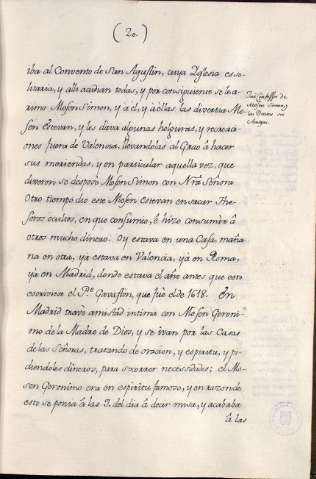 (20.)
iba al Convento de San Agustin, cuya Yglesia es so-
litaria, y alli acudian todas, y por consiguiente se lo a-
rimo Mosen Simon, y a el, y a ellas las divertia Mo-
sen Estevan, y les dava algunas holguras, y recrea-
ones fuera de Valencia, llevandolas al Grao à hacer
sus meriendas, y en particular aquella vez, que
dixeron se desposò Mosen Simon con Ntra Señora
Otro tiempo diò este Mosen Estevan en sacar The-
soros ocultos, en que consumio, è hizo consumir à
otros mucho dinero. Oy estava en una Casa, maña-
na en otra, ya estava en Valencia, yà en Roma,
yà en Madrid, donde estava el año antes que esto
escriviera el Pe. Gavaston, que fuè el de 1618. En
Madrid travò amistad intima con Mosen Geroni-
mo de la Madre de Dios, y se ivan por las Casas
de las Señoras, tratando de oracion, y espiritu, y pi-
diendoles dineros, para socorrer necesidades; el Mo-
sen Geronimo era en espiritu famoso, y en razon de
esto se ponia à las 2. del dia à decir misa, y acababa
à las